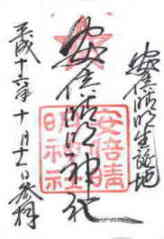 安倍晴明生誕地
安倍晴明神社
安倍晴
明神社
平成十六年十月十一日参拝